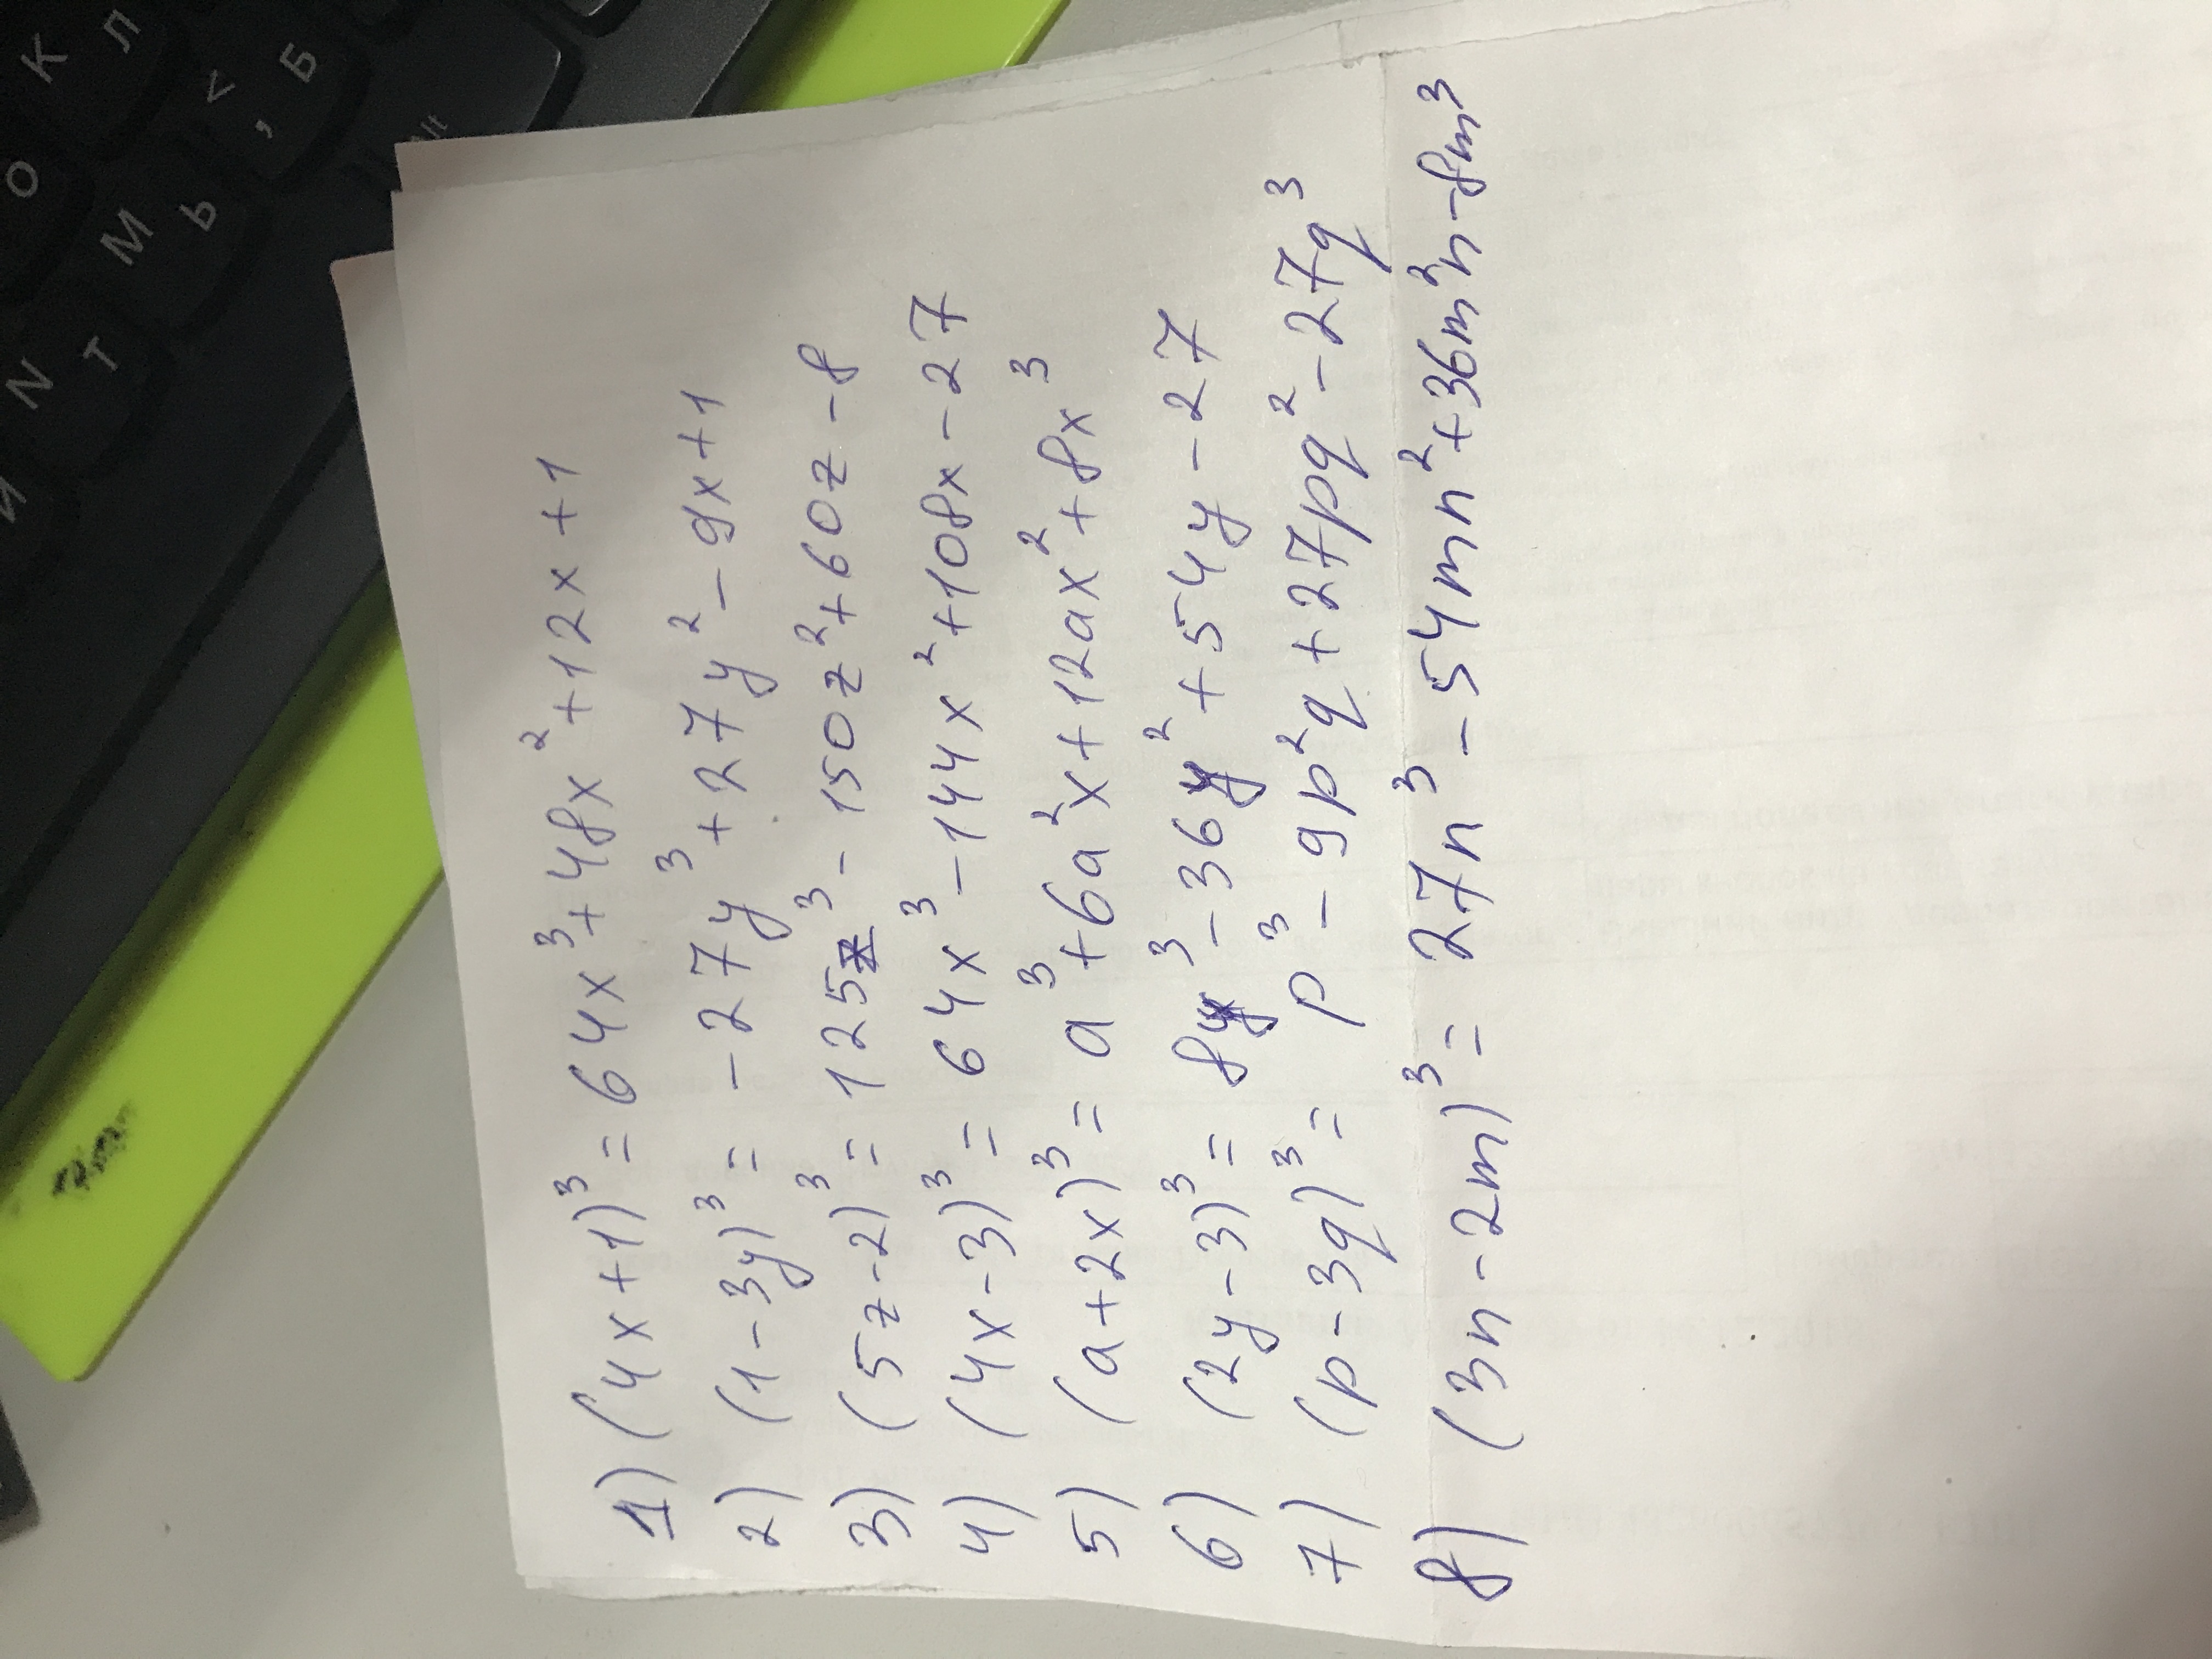 1) (4x+1)³ = 64x³+48x²+12x+1
2) (1-3y)³ = -27y³+27y²-9x+1
3) (5z-2)³ = 125z³-150z²+60z-8
4) (4x-3)³ = 64x³-144x²+108x-27
5) (a+2x)³ = a³+6a²x+12ax²+8x³
6) (2y-3)³ = 8y³-36y²+54y-27
7) (p-3q)³ = p³-9p²q+27pq²-27q³
8) (3n-2m)³ = 27n³-54mn²+36m²n-8m³
К Л
О < , Б
М Ь Alt
N Т
И